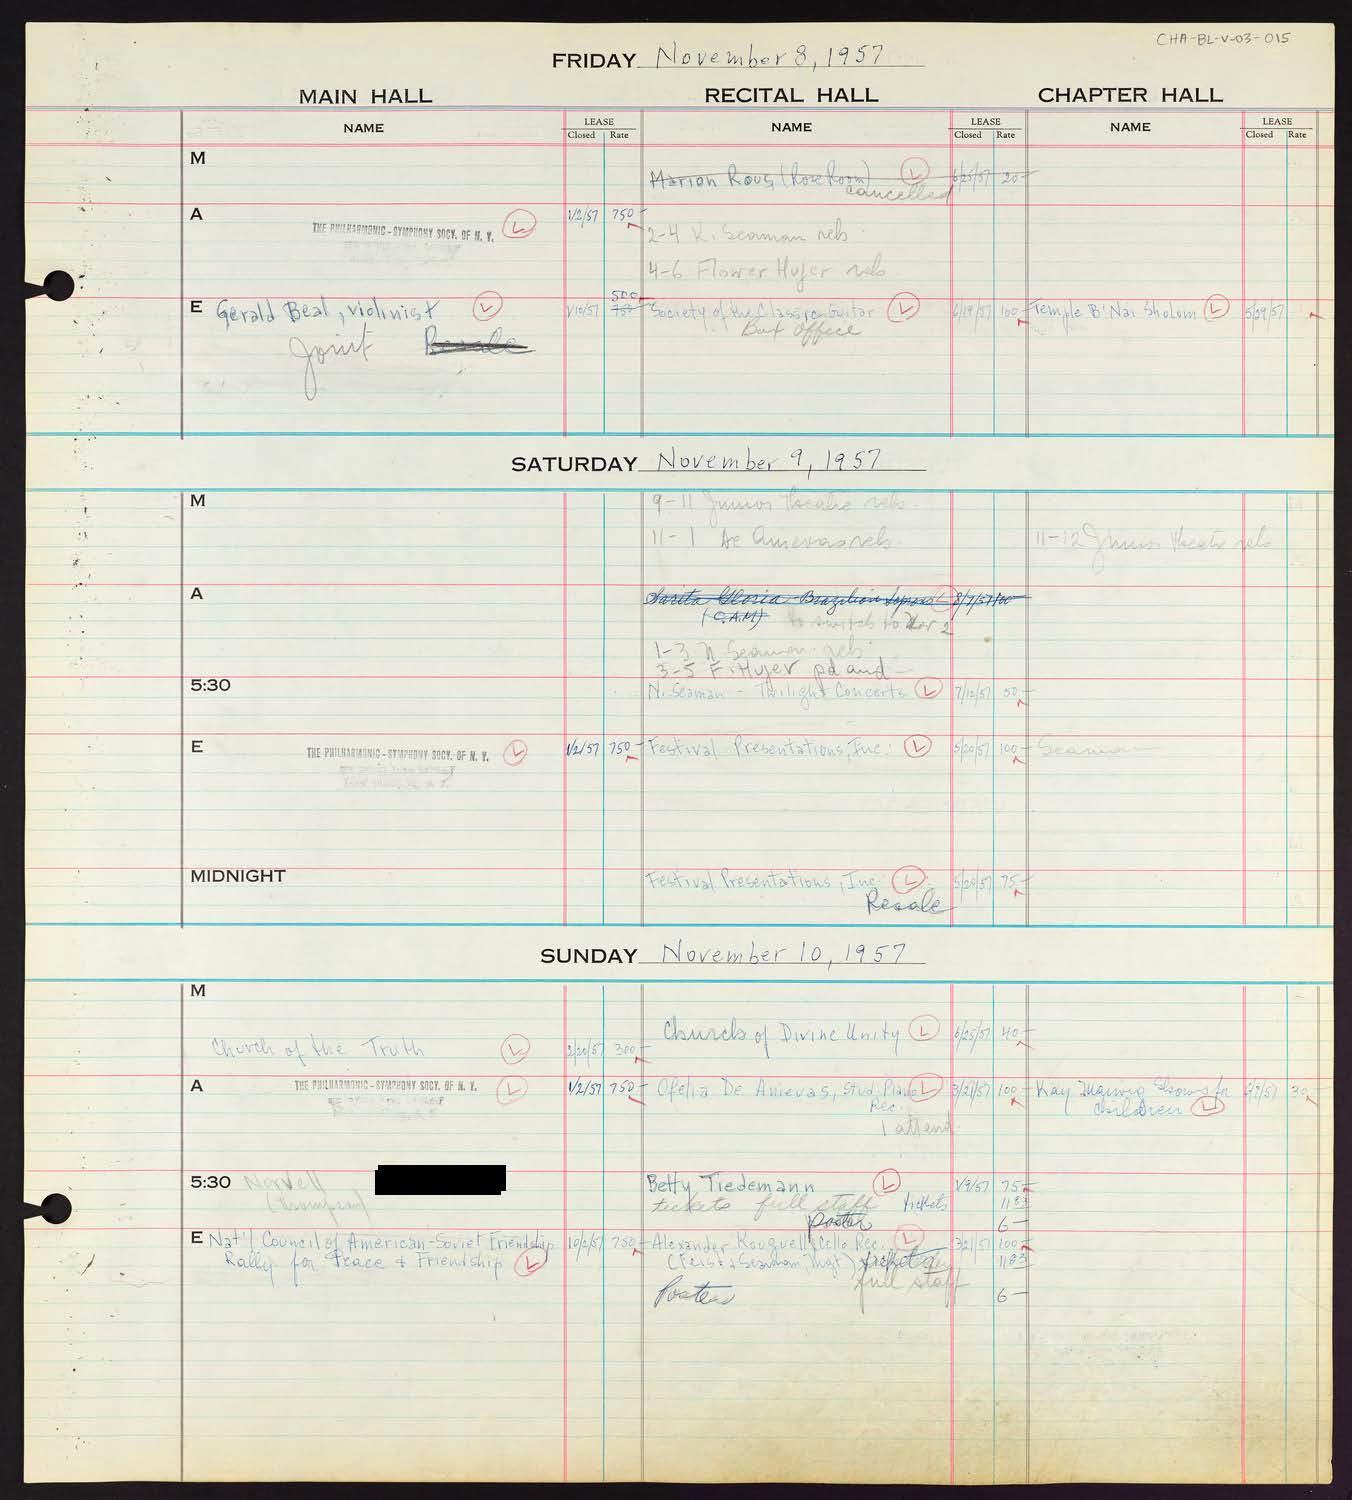 CHA-BL-V-03-015
FRIDAY November 8, 1957
MAIN HALL RECITAL HALL CHAPTER HALL
NAME LEASE Closed Rate NAME LEASE Closed Rate NAME LEASE Closed Rate
M
Marion Rous (Rose Room) L 6/25/57 20-
cancelled
A
THE PHILHARMONIC-SYMPHONY SOCY. OF N. Y. L 1/2/57 750-
2-4 N. Seaman reh
4-6 Flower Hujer reh
E Gerald Beal, violinist L 1/10/57 500 750 Society of the Classic Guitar L 6/19/57 100- Temple B'Nai Sholom L 5/29/57
Joint Resale Box Office
SATURDAY November 9, 1957
M
9-11 Junior Theatre reh.
11-1 De Anievas reh. 11-12 Junior Theatre reh
A
Sarita Gloria Brazilian Soprano L 8/7/57 100
(C.A.M) to switch to Mar 2
1-3 N Seaman reh
3-5 F. Hujer pd and -
5:30
N. Seaman - Twilight Concerts L 7/12/57 50-
E THE PHILHARMONIC-SYMPHONY SOCY. OF N. Y. L 1/2/57 750- Festival Presentations, Inc. L 5/20/57 100- Seaman
MIDNIGHT
Festival Presentations, Inc. L 5/20/57 75-
Resale
SUNDAY November 10, 1957
M
Church of Divine Unity L 6/25/57 40-
Church of the Truth L 2/20/57 300-
A THE PHILHARMONIC-SYMPHONY SOCY. OF N. Y. L 1/2/57 750- Ofelia De Anievas, Stud. Piano L 3/21/57 100- Kay Shows for 30-
Rec. Children L
1 attend
5:30 Norvell Betty Tiedemann L 1/9/57 75-
(Thompson) tickets full staff tickets 11 83
poster 6-
E Nat'l Council of American-Soviet Friendship 10/2/57 750- Alexander Kouguell, Cello Rec. L 3/21/57 100-
Rally for Peace & Friendship L (Feist & Seaman, Mgt) 11 83
full staff
Posters 6-